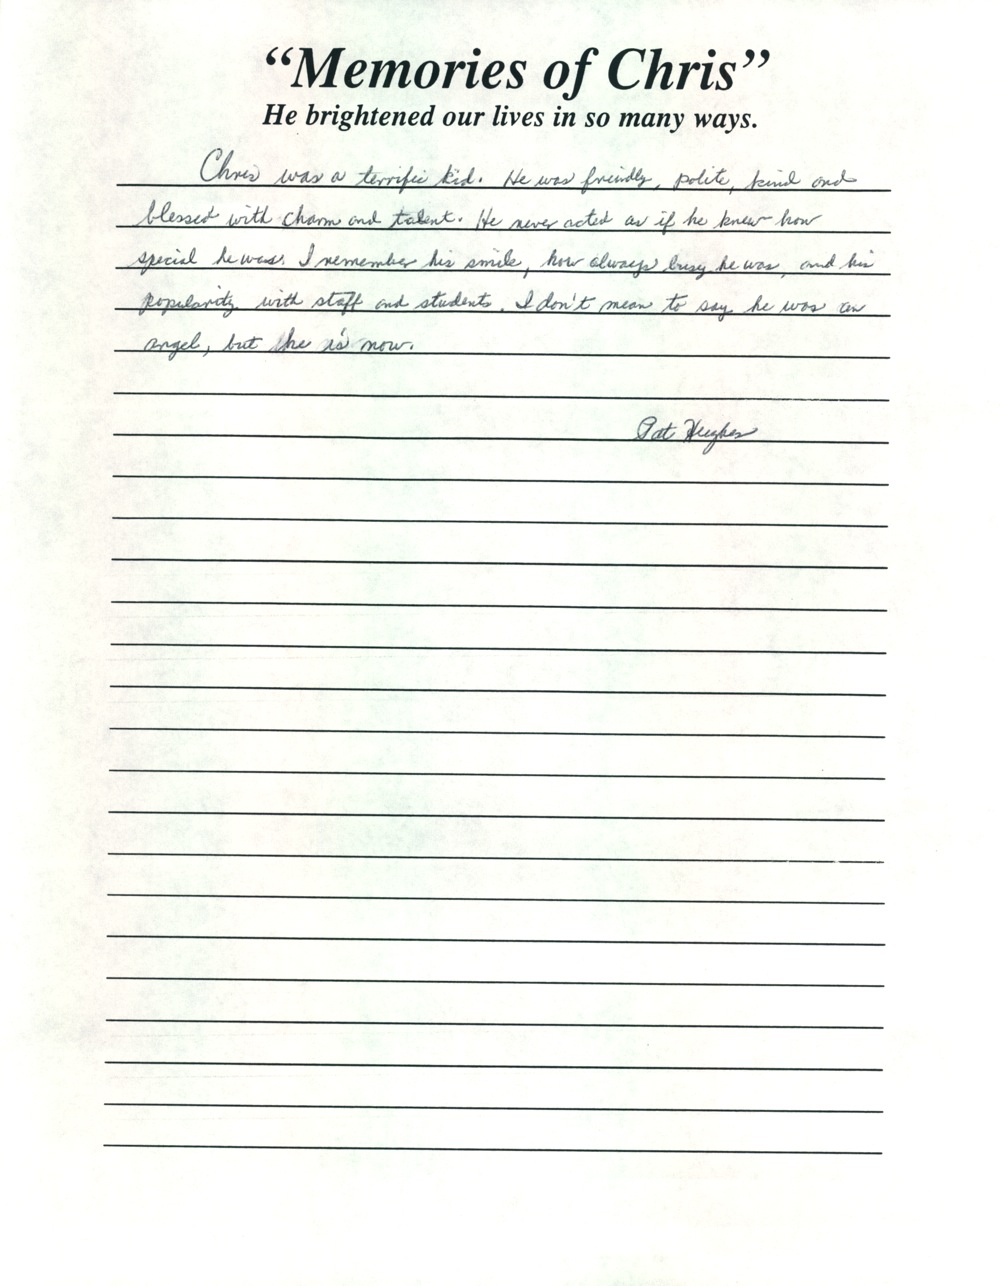 “Memories of Chris”
He brightened our lives in so many ways.
Chris was a terrific kid. He was friendly, polite, kind and
blessed with charm and talent. He never acted as if he knew how
special he was. I remember his smile, how always busy he was, and his
popularity with staff and students. I don't mean to say he was an
angel, but he is now.
Pat Hughes